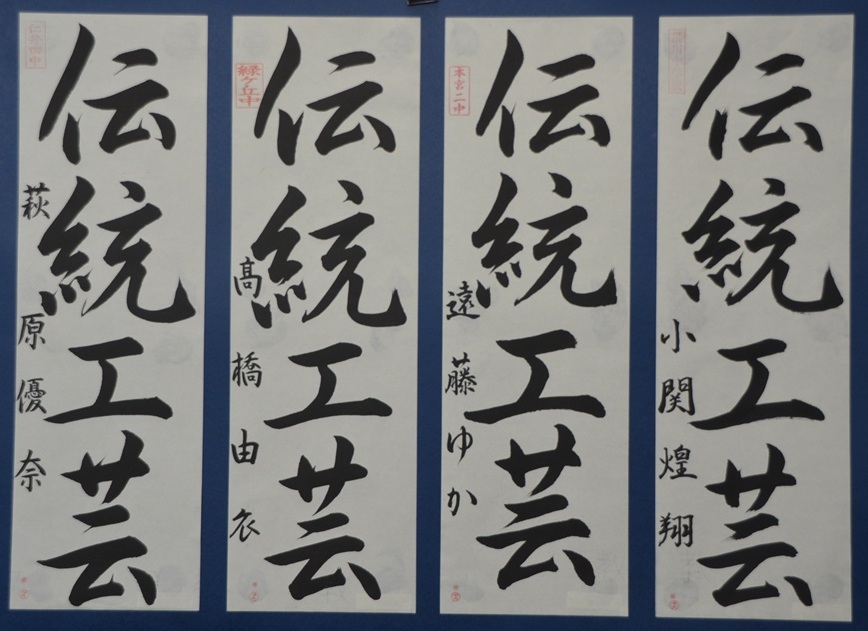 伝統工芸
萩原優奈
緑ケ丘中
伝統工芸
高橋由衣
本宮二中
伝統工芸
遠藤ゆか
伝統工芸
小関煌翔